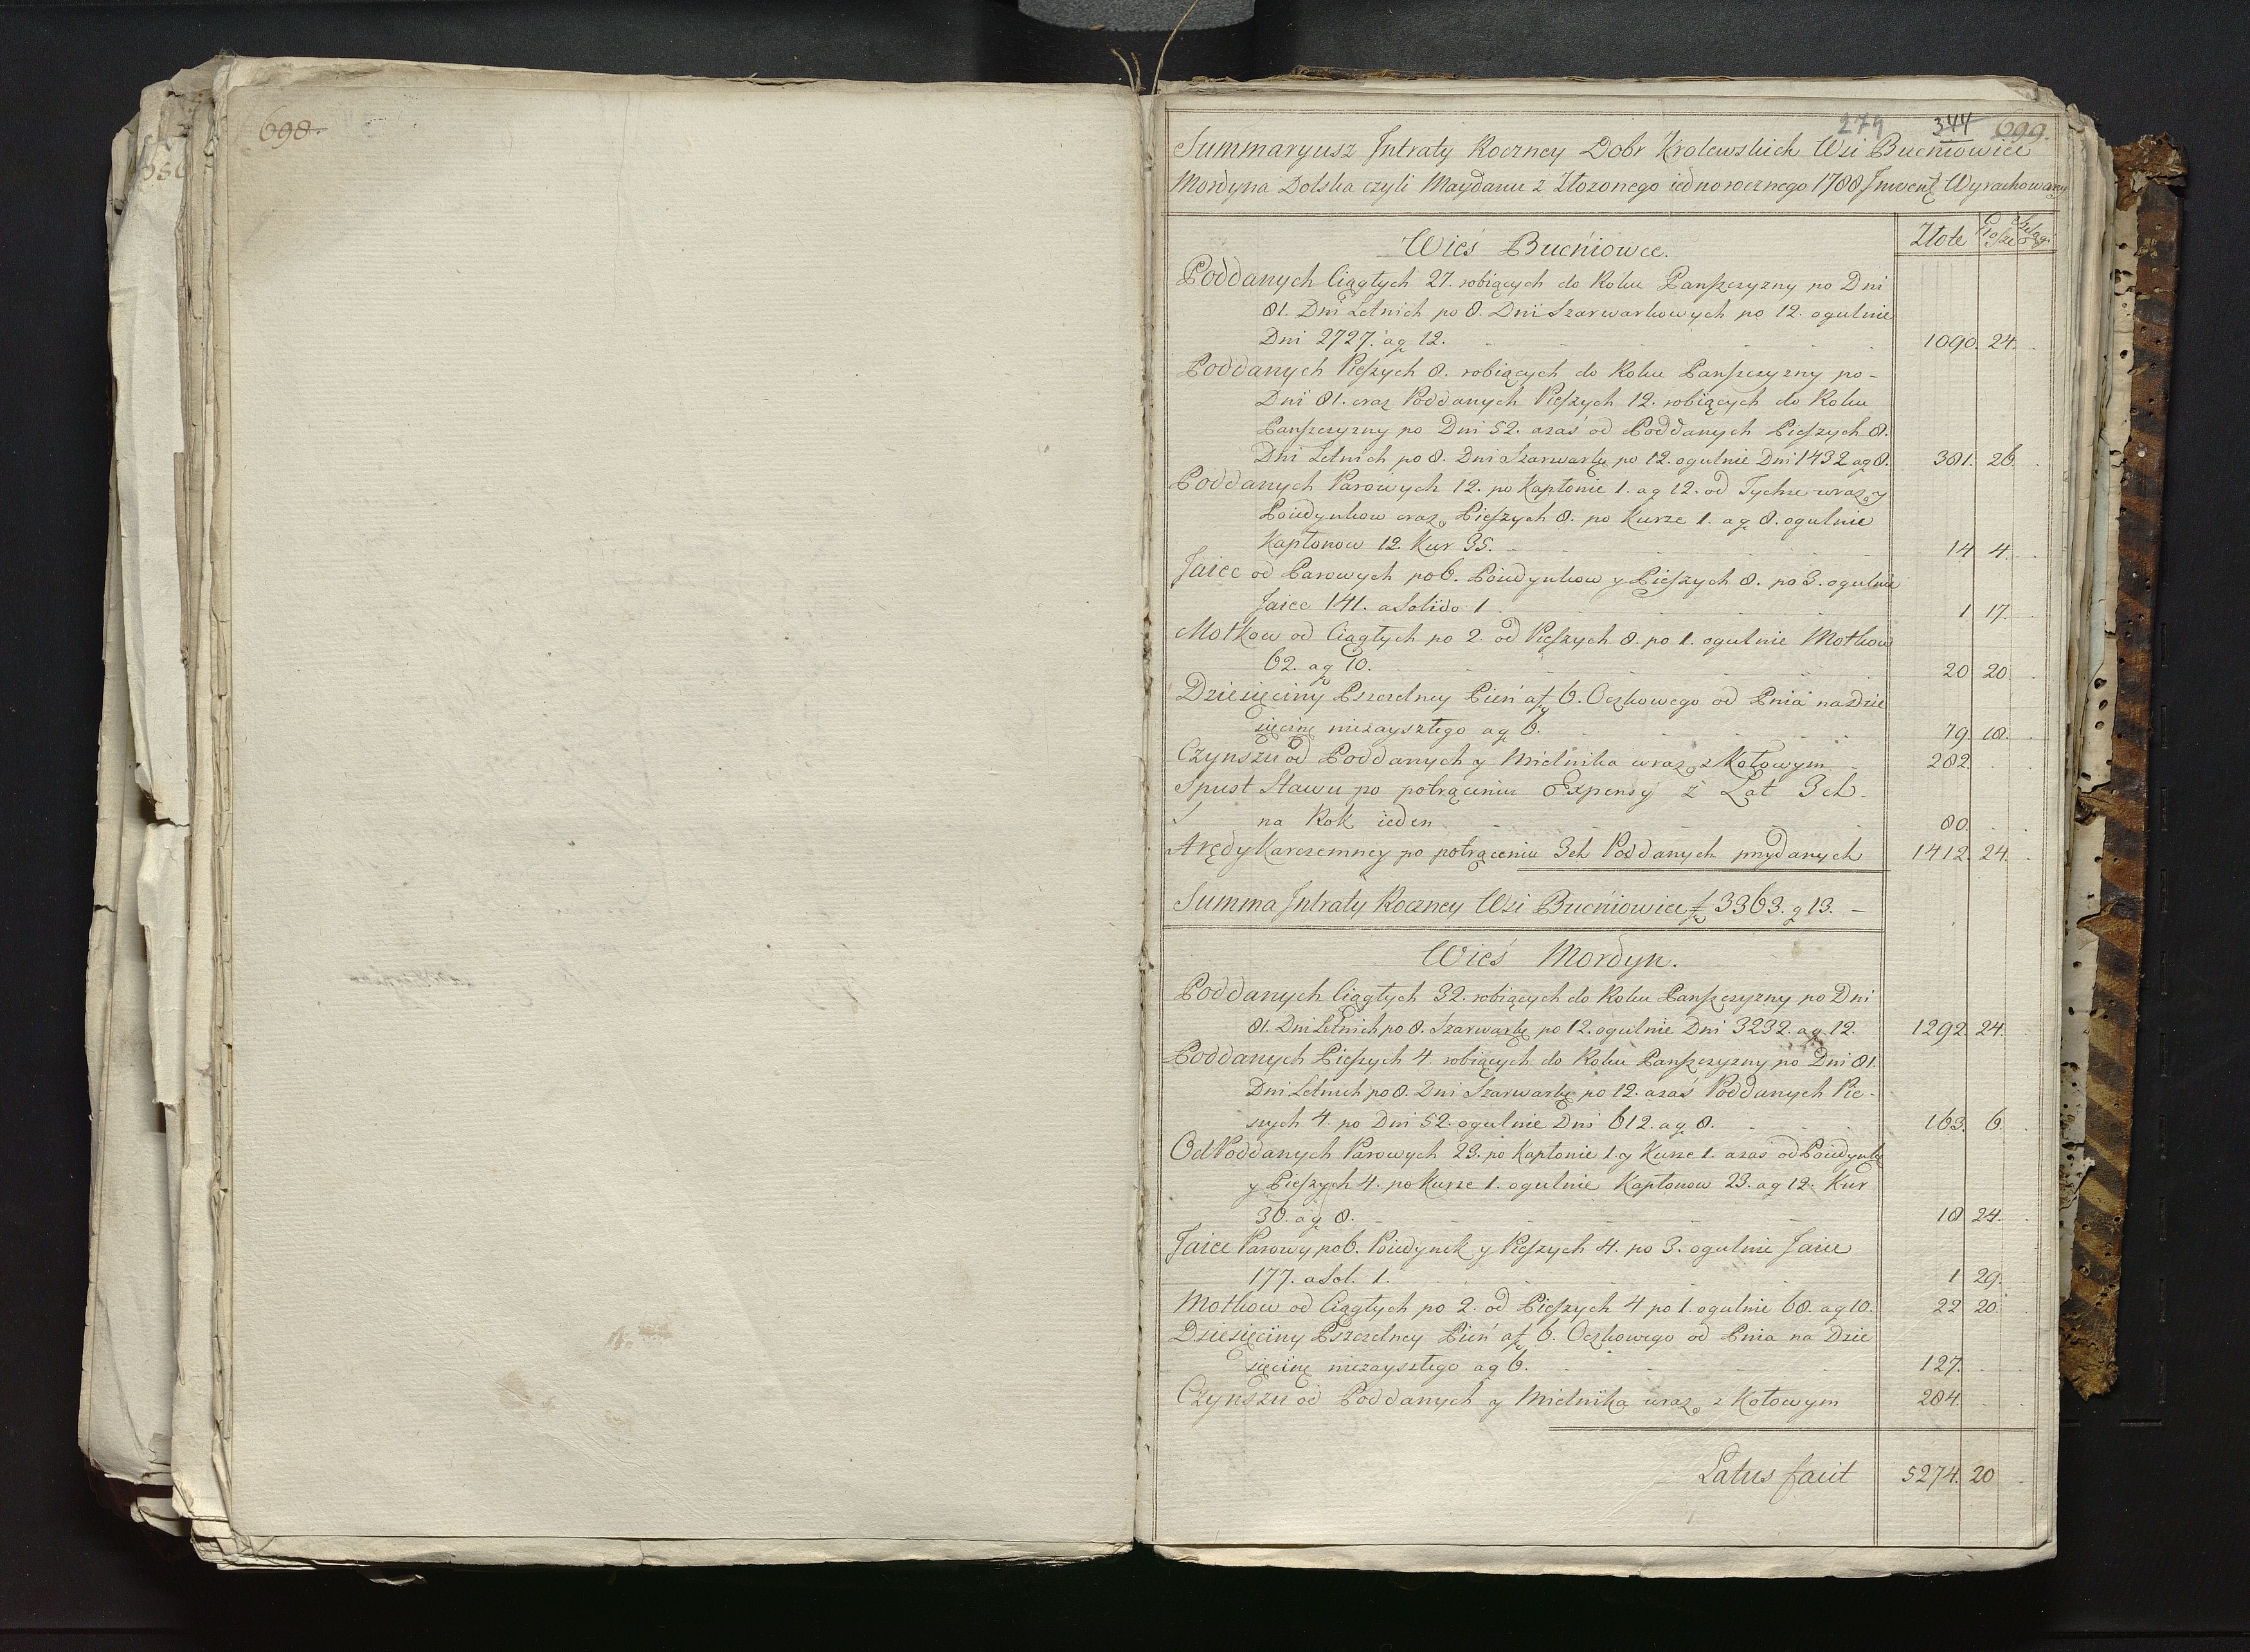 698.
279 344 699.
Summaryusz Intraty Roczney Dobr Krolewskich Wsi Bucniowiec
Mordyna Dolska czyli Maydanu z Złozonego iednorocznego 1788 Inwent Wyrachowany
Złote Grosze Szelągi
Wieś Bucńiowce.
Poddanych Ciągłych 27. robiących do Roku Panszczyzny po Dni
81. Dni Letnich po 8. Dni Szarwarkowych po 12. ogulnie
Dni 2727. a g 12. 1090. 24.
Poddanych Pieszych 8. robiących do Roku Panszczyzny po-
Dni 81. oraz Poddanych Pieszych 12. robiących do Roku
Panszczyzny po Dni 52. azaś od Poddanych Pieszych 8.
Dni Letnich po 8. Dni Szarwarkę po 12. ogulnie Dni 1432 a g 8. 381. 26.
Poddanych Parowych 12. po Kapłonie 1. a g 12. od Tychże wraz y
Poiedynkow oraz Pieszych 8. po Kurze 1. a g 8. ogulnie
Kapłonow 12. Kur 35. 14 4.
Jaiec od Parowych po 6. Poiedynkow y Pieszych 8. po 3. ogulnie
Jaiec 141. a Solido 1. 1 17.
Motkow od Ciągłych po 2. od Pieszych 8. po 1. ogulnie Motkow
62. a g 10. 20 20.
Dziesięciny Pszczelney Pień a f 6. Oczkowego od Pnia na dzie
sięcinę niezayszłego a g 6. 79 18.
Czynszu od Poddanych y Mielnika wraz z Kołowym 282.
Spust Stawu po potrąceniu Expensy z Lat 3ch.
na Rok ieden 80.
Arędy Karczemney po potrąceniu 3ch Poddanych przydanych 1412. 24.
Summa Intraty Roczney Wsi Bucńiowiec f 3363. g 13. –
Wieś Mordyn.
Poddanych Ciągłych 32. robiących do Roku Panszczyzny po Dni
81. Dni Letnich po 8. Szarwarkę po 12. ogulnie Dni 3232. a g 12. 1292. 24.
Poddanych Pieszych 4. robiących do Roku Panszczyzny po Dni 81.
Dni Letnich po 8. Dni Szarwarkę po 12. azaś Poddanych Pie-
szych 4. po Dni 52. ogulnie Dni 612. a g 8. 163. 6.
Od Poddanych Parowych 23. po Kapłonie 1. y Kurze 1. azaś od Poiedynkę
y Pieszych 4. po Kurze 1. ogulnie Kapłonow 23. a g 12. Kur
36. a g 8. 18 24.
Jaiec Parowy po 6. Poiedynek y Pieszych 4. po 3. ogulnie Jaiec
177. a Sol. 1. 1 29.
Motkow od Ciągłych po 2. od Pieszych 4 po 1. ogulnie 68. a g 10. 22 20.
Dziesięciny Pszczelney Pień a f 6. Oczkowego od Pnia na Dzie
sięcinę niezayszłego a g 6. 127.
Czynszu od Poddanych y Mielnika wraz z Kołowym 284.
Latus facit 5274. 20